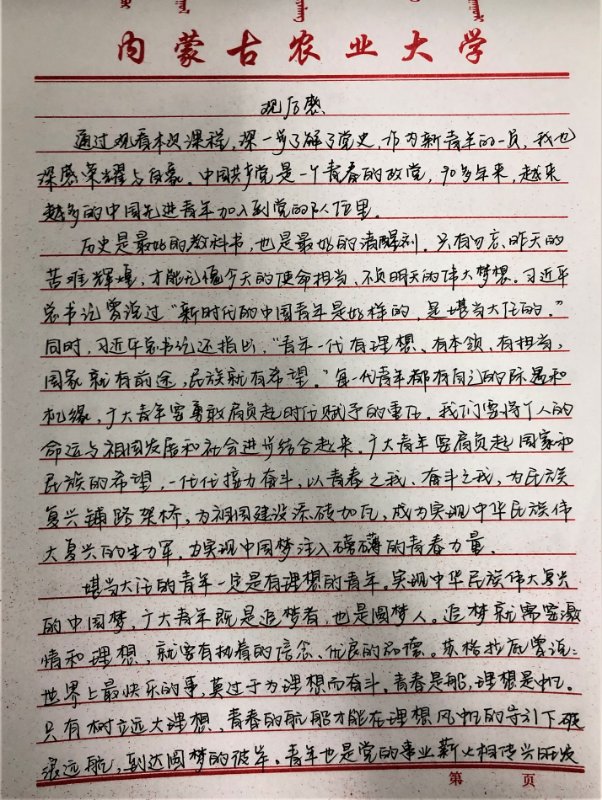 内蒙古农业大学
观后感
通过观看本次课程，深一步了解了党史，作为新青年的一员，我也
深感荣耀与自豪。中国共产党是一个青春的政党，90多年来，越来
越多的中国先进青年加入到党的队伍里。
历史是最好的教科书，也是最好的清醒剂。只有勿忘昨天的
苦难辉煌，才能无愧今天的使命担当，不负明天的伟大梦想。习近平
总书记曾说过“新时代的中国青年是好样的，是堪当大任的。”
同时，习近平总书记还指出，“青年一代有理想、有本领、有担当，
国家就有前途，民族就有希望。”每一代青年都有自己的际遇和
机缘，广大青年要勇敢肩负起时代赋予的重任。我们要将个人的
命运与祖国发展和社会进步结合起来。广大青年要肩负起国家和
民族的希望，一代代接力奋斗，以青春之我、奋斗之我，为民族
复兴铺路架桥，为祖国建设添砖加瓦，成为实现中华民族伟
大复兴的生力军，为实现中国梦注入磅礴的青春力量。
堪当大任的青年一定是有理想的青年。实现中华民族伟大复兴
的中国梦，广大青年既是追梦者，也是圆梦人。追梦就需要激
情和理想、就要有执着的信念、优良的品德。苏格拉底曾说：
世界上最快乐的事，莫过于为理想而奋斗。青春是船，理想是帆。
只有树立远大理想、青春的航船才能在理想风帆的导引下破
浪远航，到达圆梦的彼岸。青年也是党的事业薪火相传兴旺发
第 页